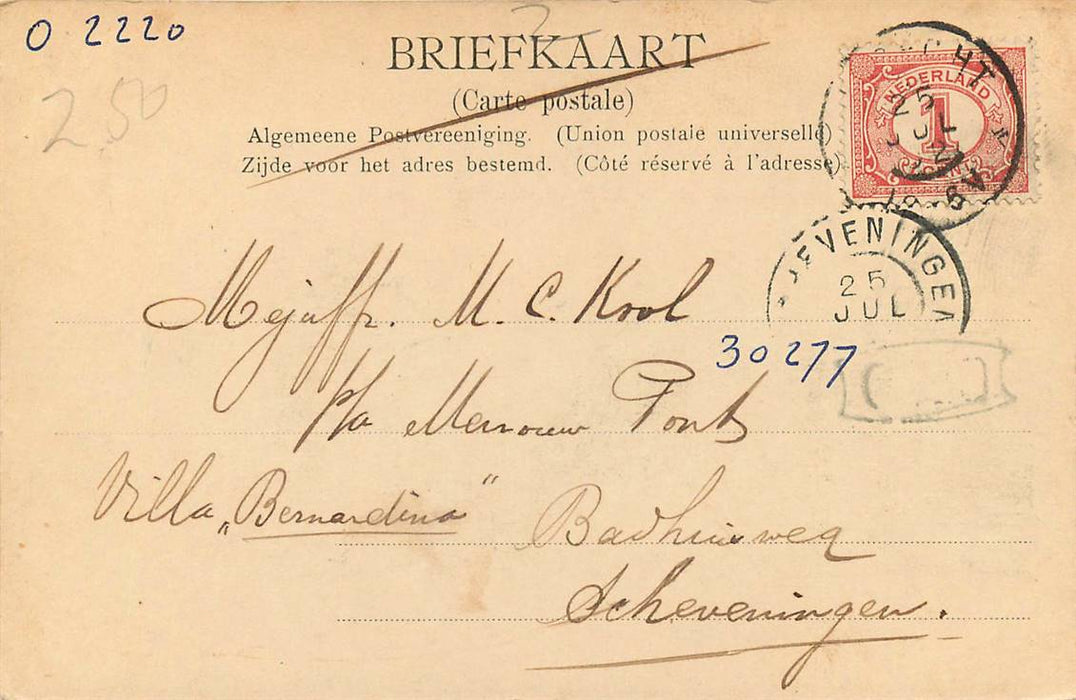 O 2220
2,50
BRIEFKAART
(Carte postale)
Algemeene Postvereeniging. (Union postale universelle)
Zijde voor het adres bestemd. (Côté réservé à l'adresse)
NEDERLAND
1
CHT
25
JUL
EVENINGEN
25
JUL
Mejuffr. M. C. Kool
30277
p/a Mevrouw Pont
Villa „Bernardina"
Badhuisweg
Scheveningen.